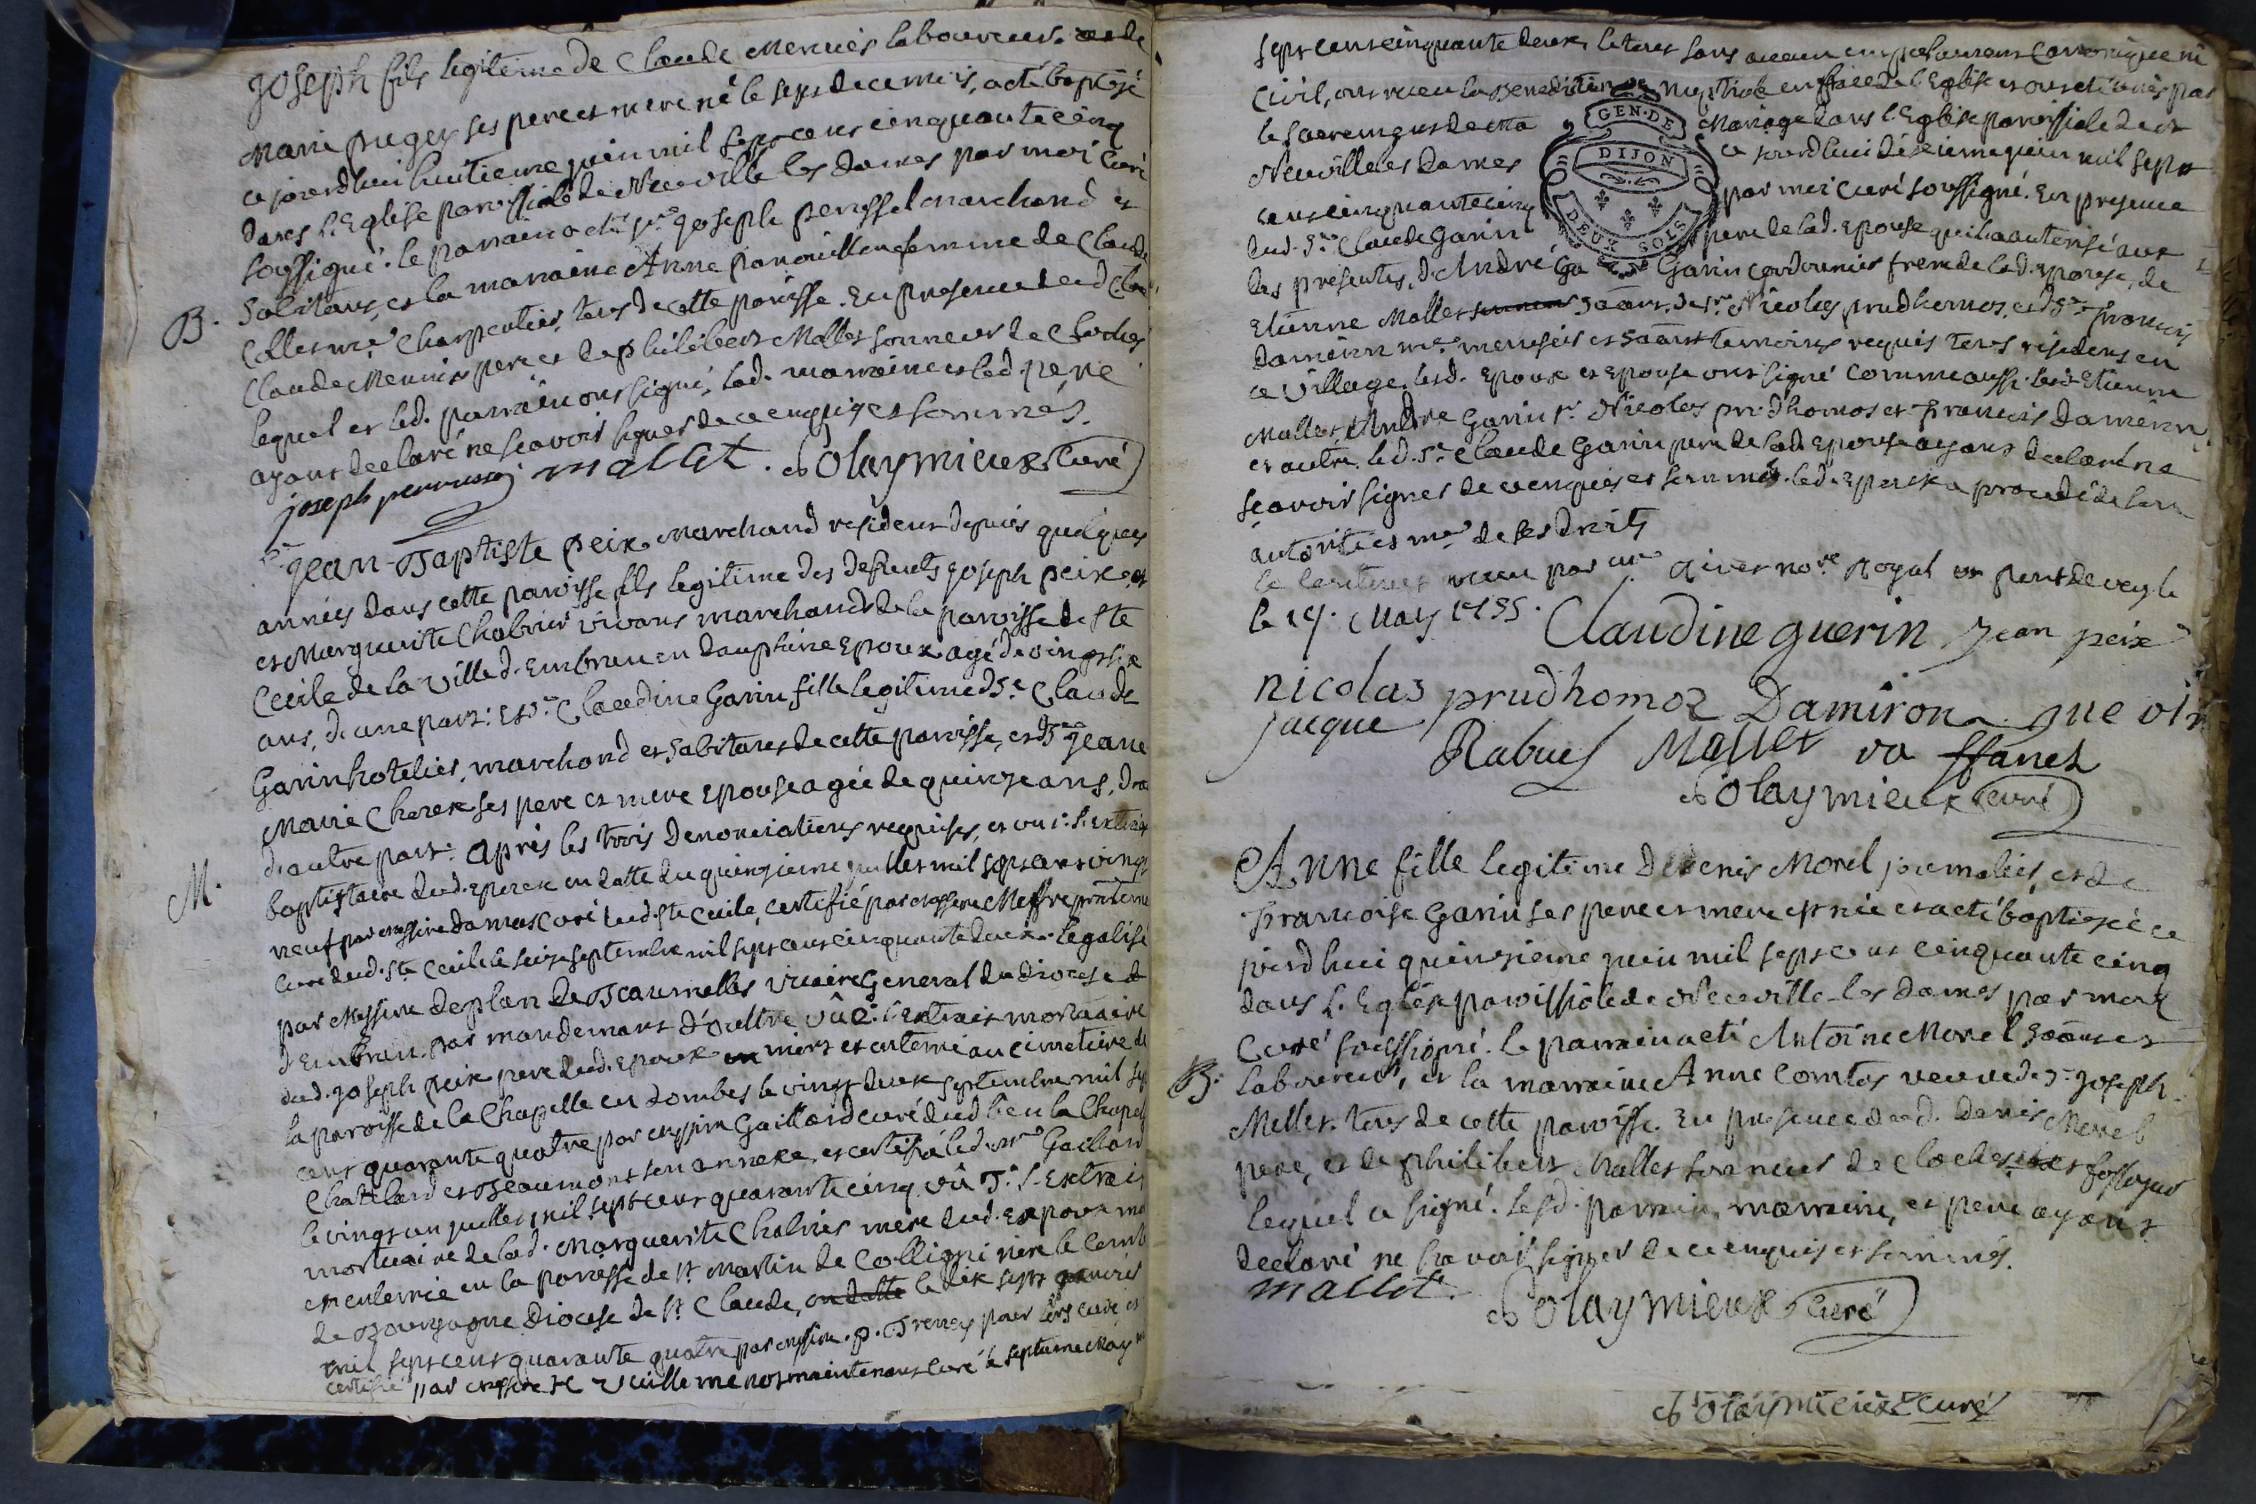 Joseph fils legitime de Claude Mercier laboureur et de
Marie puget ses pere et mere né le sept de ce mois, a eté baptisé
ce jourdhui huitieme juin mil sept cent cinquante cinq
dans l'Eglise paroissiale de Neuville les dames par moi curé
soussigné. le parrain a eté sr Joseph perussel marchand et
B.
habitant, et la marraine Anne panouillon femme de Claude
Collet me charpentier, tous de cette paroisse. En presence dud Claude
Claude Mercier pere et de philibert Mallet sonneur de cloches
lequel et led. parrain ont signé, lad. marraine et led pere
ayant declaré ne scavoir signer de ce enquis et sommés.
joseph perussel mallet. Dolaymieux curé
sr Jean-Baptiste peix marchand resident depuis quelques
années dans cette paroisse fils legitime des defunts Joseph peix et
et Marguerite Chabrier vivans marchands de la paroisse de Ste
Cecile de la ville d'Embrun en dauphiné Epoux agé de vingt six
ans, d'une part: et dlle Claudine Garin fille legitime de sr Claude
Garin hotelier, marchand et habitant de cette paroisse, et de dlle Jeane
Marie Charex ses pere et mere Epouse agée de quinze ans,
M.
d'autre part. après les trois denonciations requises, et vu 1º l'extrait
baptistaire dud. Epoux en datte du quinzieme juillet mil sept cent vingt
neuf par messire damas curé dud. Ste Cecile, certifié par messire Meffre
curé dud. Ste Cecile le seize septembre mil sept cent cinquante deux. legalisé
par Messire deplan de vicaire General du diocese
d'Embrun par mandement d'oultre vû 2º l'Extrait mortuaire
dud. Joseph peix pere dud. Epoux mort et enterré au cimetiere de
la paroisse de la Chapelle en Dombes le vingt deux septembre mil sept
cent quarante quatre par messire Gaillard curé dud lieu la Chapelle
Chatelard et Beaumont son annexe, et certifié led. Gaillard
le vingt un juillet mil sept cent quarante cinq vû 3º l'Extrait
mortuaire de lad. Marguerite Chabrier mere dud. Epoux
et enterrée en la paroisse de St Martin de Colligni riere le Comté
de Bourgogne Diocese de St Claude, en datte le dix sept janvier
mil sept cent quarante quatre par messire. p. pour lors curé et
certifié par messire Vuillemenot maintenant curé le septieme May
sept cent cinquante deux, le tout sans aucun empechement canonique ni
civil, ont reçu la Benediction nuptiale en face de l'Eglise et ont eté unis par
le sacrement de Mariage dans l'Eglise paroissiale de
Neuville les dames ce jourdhui dixieme juin mil sept
cent cinquante cinq par moi curé soussigné. En presence
GEN. DE
DIJON
DEUX SOLS
dud. sr Claude Garin pere de lad. Epouse qui l'a autorisé aux
des presentes, d'André Ga Garin cordonnier frere de lad. Epouse, de
Etienne Mallet de sr Nicolas prudhomos, et de sr francois
Damiron me menusier et temoins requis tous residens en
ce village. lesd. Epoux et Epouse ont signé comme aussi led. Etienne
Mallet, Andre Garin sr Nicolas prudhomos et francois damiron
et autre. led. sr Claude Garin pere de lad. Epouse ayant declaré ne
scavoir signer de ce enquis et sommé. led. Epoux a procedé de son
autorité et me de ses droits
le contract reçu par me nore Royal pont de veyle
le 19. May 1755. Claudine guerin Jean peix
nicolas prudhomos Damiron
jacque Rabuel Mallet
Dolaymieux curé
Anne fille legitime de Denis Morel journalier, et de
francoise Garin ses pere et mere est née et a eté baptisée ce
jourdhui quinzieme juin mil sept cent cinquante cinq
dans l'Eglise paroissiale de Neuville-les dames par moi
Curé soussigné. le parrain a eté Antoine Morel
B.
laboureur, et la marraine Anne Comtos veuve de sr Joseph
Mallet. tous de cette paroisse. En presence dud. Denis Morel
pere, et de philibert Mallet sonneur de cloches et fossoyeur
lequel a signé. lesd. parrain, marraine, et pere ayant
declaré ne scavoir signer de ce enquis et sommés.
mallet. Dolaymieux curé
Dolaymieux curé